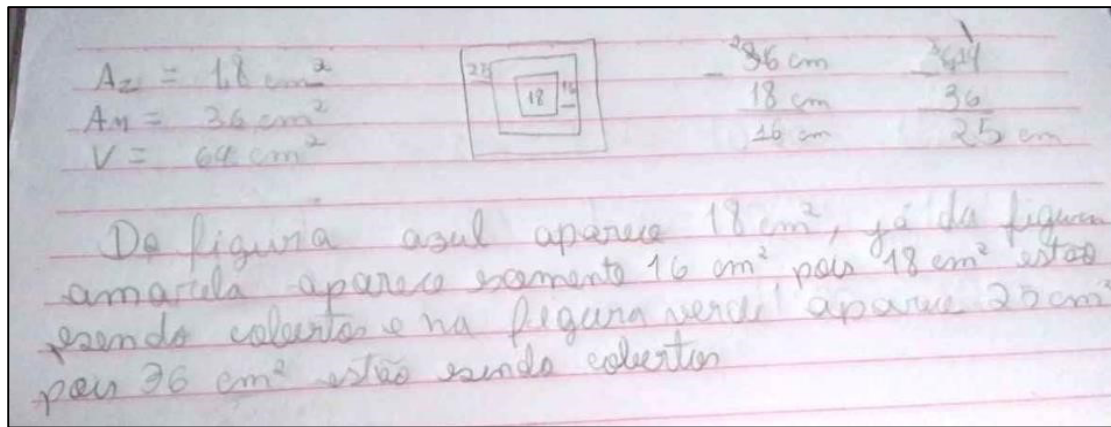 Az = 18 cm²
Am = 36 cm²
V = 64 cm²
25
18
16
- 36 cm
18 cm
16 cm
-
36
25 cm
Da figura azul aparece 18 cm², já da figura
amarela aparece somente 16 cm² pois 18 cm² estão
sendo cobertos e na figura verde aparece 25 cm²
pois 36 cm² estão sendo cobertos